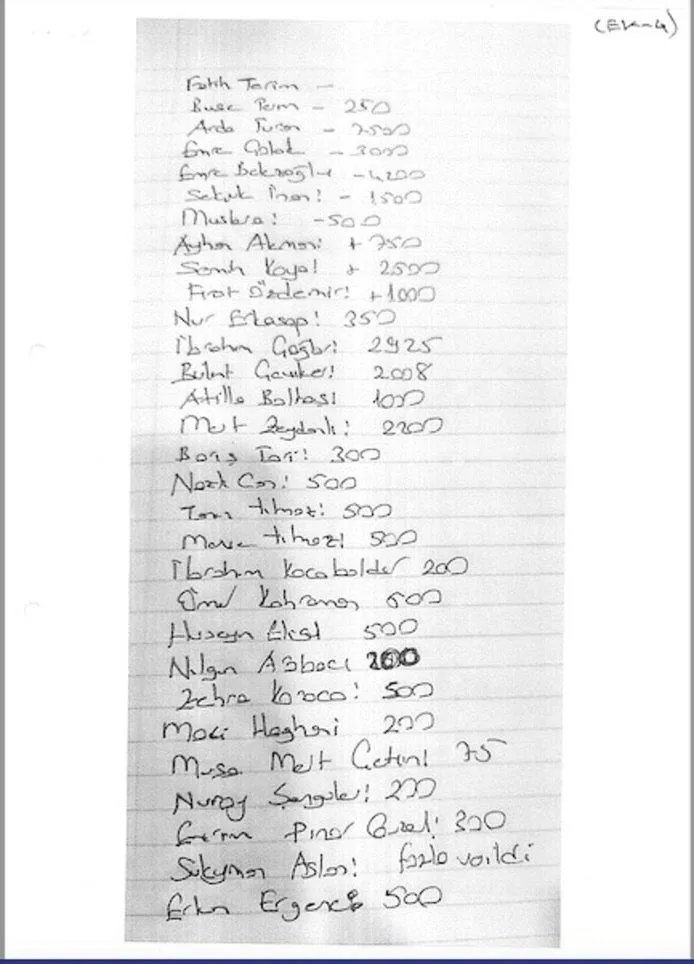 (Ek-4)
Fatih Terim -
Buse Terim - 250
Arda Turan - 7500
Emre Çolak - 3000
Emre Belezoğlu - 4,200
Selçuk İnan: - 1500
Muslera: - 500
Ayhan Akman: + 750
Semih Kaya: + 2500
Fırat Özdemir: +1000
Nur Erkasap: 350
İbrahim 2925
Bülent 2008
Atilla Baltaş: 1000
Mert Zeydanlı: 2200
Barış Tari: 300
Nazlı Can: 500
Yılmaz: 500
Merve Yılmaz: 500
İbrahim Kocabaldır 200
Kahraman 500
Hüseyin 500
Nilgün 200
Zehra Karaca: 500
Haghari 200
Musa Mert Çetin: 75
Nuray Şengüler: 200
Pınar 300
Süleyman Aslan: fazla verildi
Erkan 500